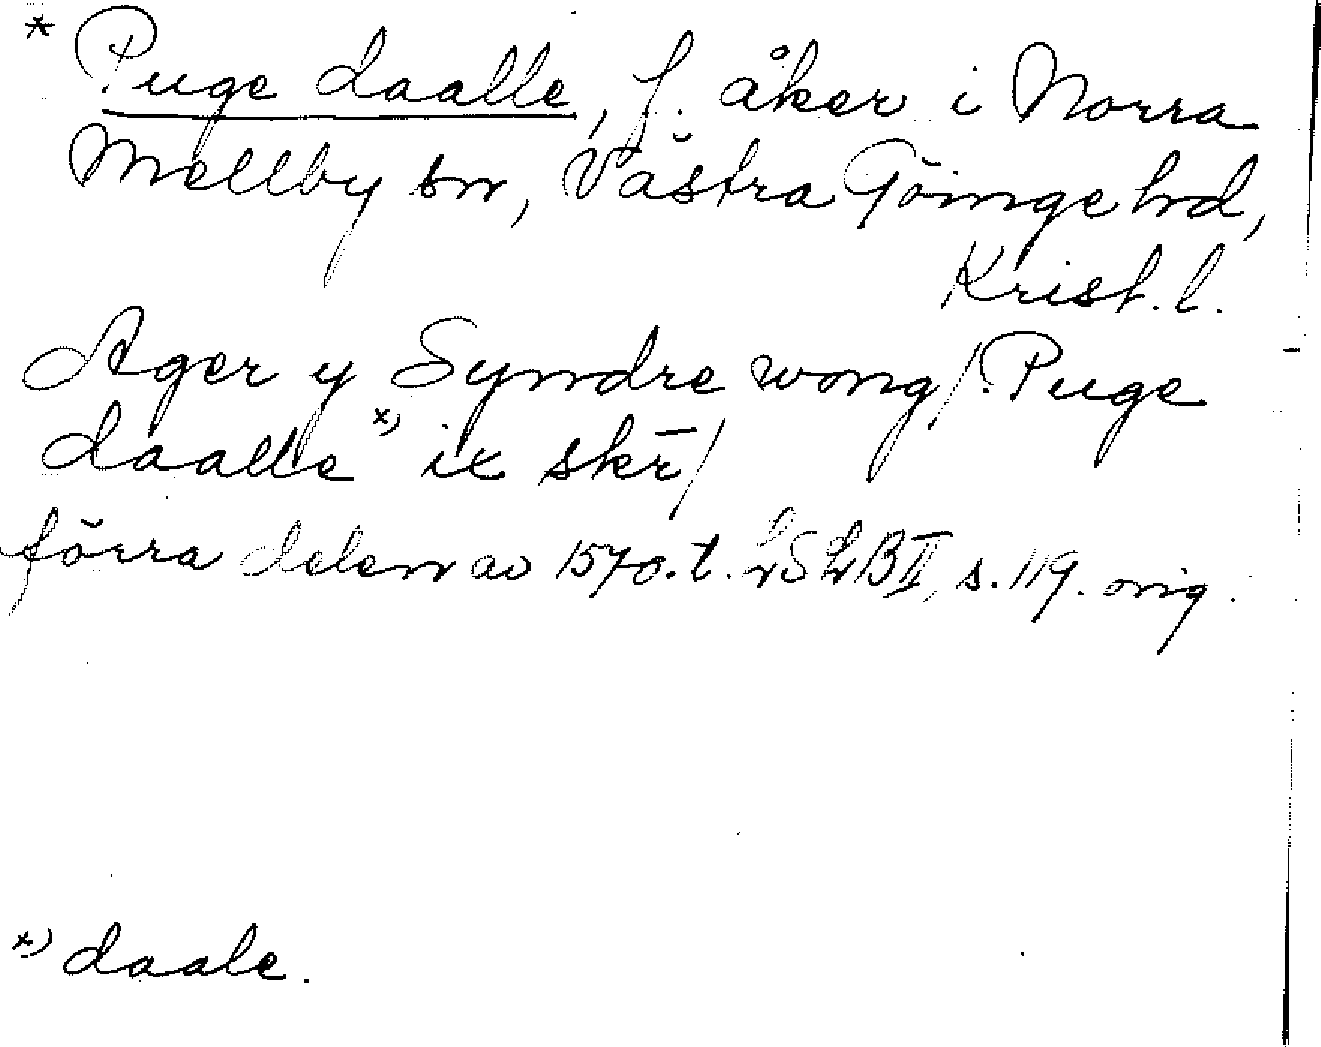 * Puge daalle, f. åker i Norra
Mellby sn, Västra Göinge hrd,
Krist. l.
Ager y Syndre wong/. Puge
daalle x) ix skr̄/
förra delen av 1570. t. LSLB II, s. 119. orig.
x) daale.